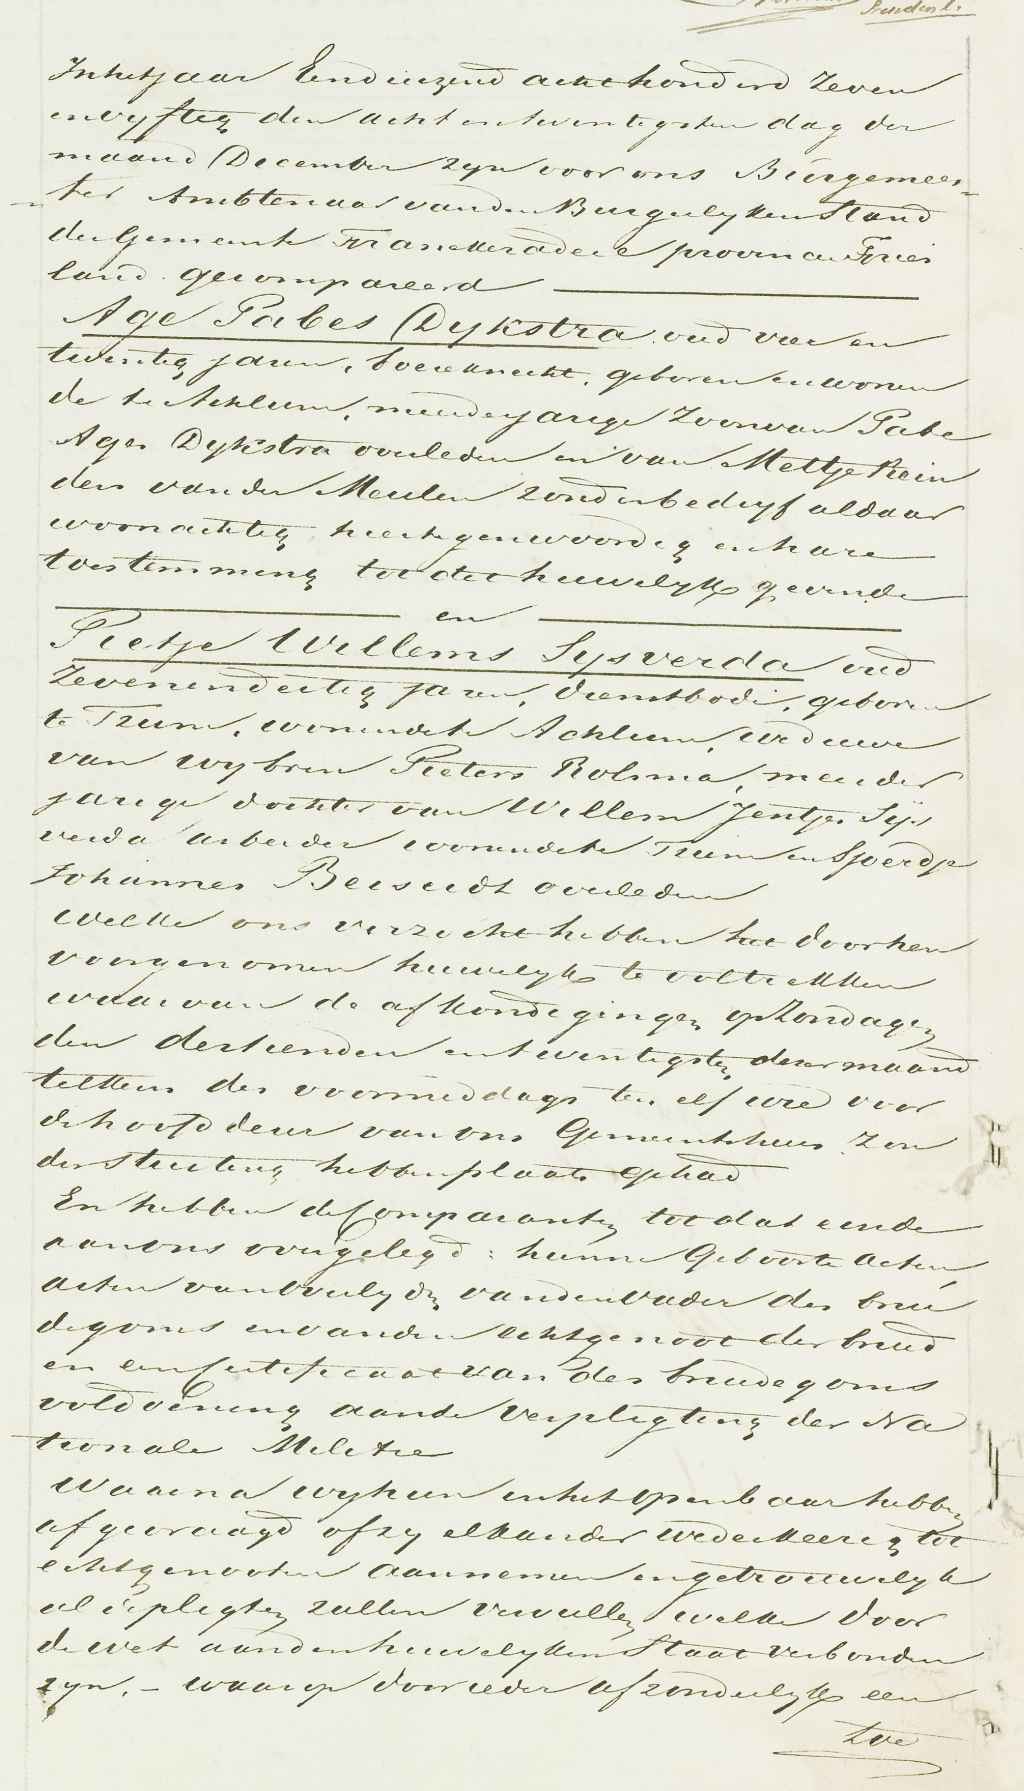 In het jaar Eenduizend acht honderd Zeven
en vyftig den acht en twintigsten dag der
maand December zyn voor ons Burgemees-
ter Ambtenaar van den Burgerlyken Stand
der Gemeente Franekeradeel provincie Fries
land gecompareerd
Age Pabes Dykstra oud vier en
twintig jaren, boereknecht, geboren en wonen
de te Achlum, meerderjarige Zoon van Pabe
Ages Dykstra overleden en van Mettje Rein
ders van der Meulen zonder bedryf aldaar
woonachtig, hier tegenwoordig en hare
toestemming tot dit huwelyk gevende
en
Pietje Willems Sysverda oud
Zevenendertig jaren, dienstbode, geboren
te Tzum, wonende te Achlum, weduwe
van Wybren Pieters Rolsma, meerder
jarige dochter van Willem Jentjes Sys
verda arbeider wonende te Tzum en Sjoerdje
Johannes overleden
Welke ons verzocht hebben het door hen
voorgenomen huwelyk te voltrekken
waarvan de afkondigingen op Zondagen
den dertienden en twintigsten dezer maand
telkens des voormiddags ten elf ure voor
de hoofddeur van ons Gemeentehuis zon
der stuiting hebben plaats gehad
En hebben de Comparanten tot dat einde
aan ons overgelegd: hunne Geboorte acten,
acten van overlyden van den vader des brui
degoms en van den echtgenoot der bruid
en een Certificaat van des bruidegoms
voldoening aan de verpligting der Na
tionale Militie
Waarna wy hun in het openbaar hebben
afgevraagd of zy elkander wederkeerig tot
echtgenooten aannemen en getrouwelyk
al de pligten zullen vervullen welke door
de wet aan den huwelyken Staat verbonden
zyn, – waarop door ieder afzonderlyk een
toe